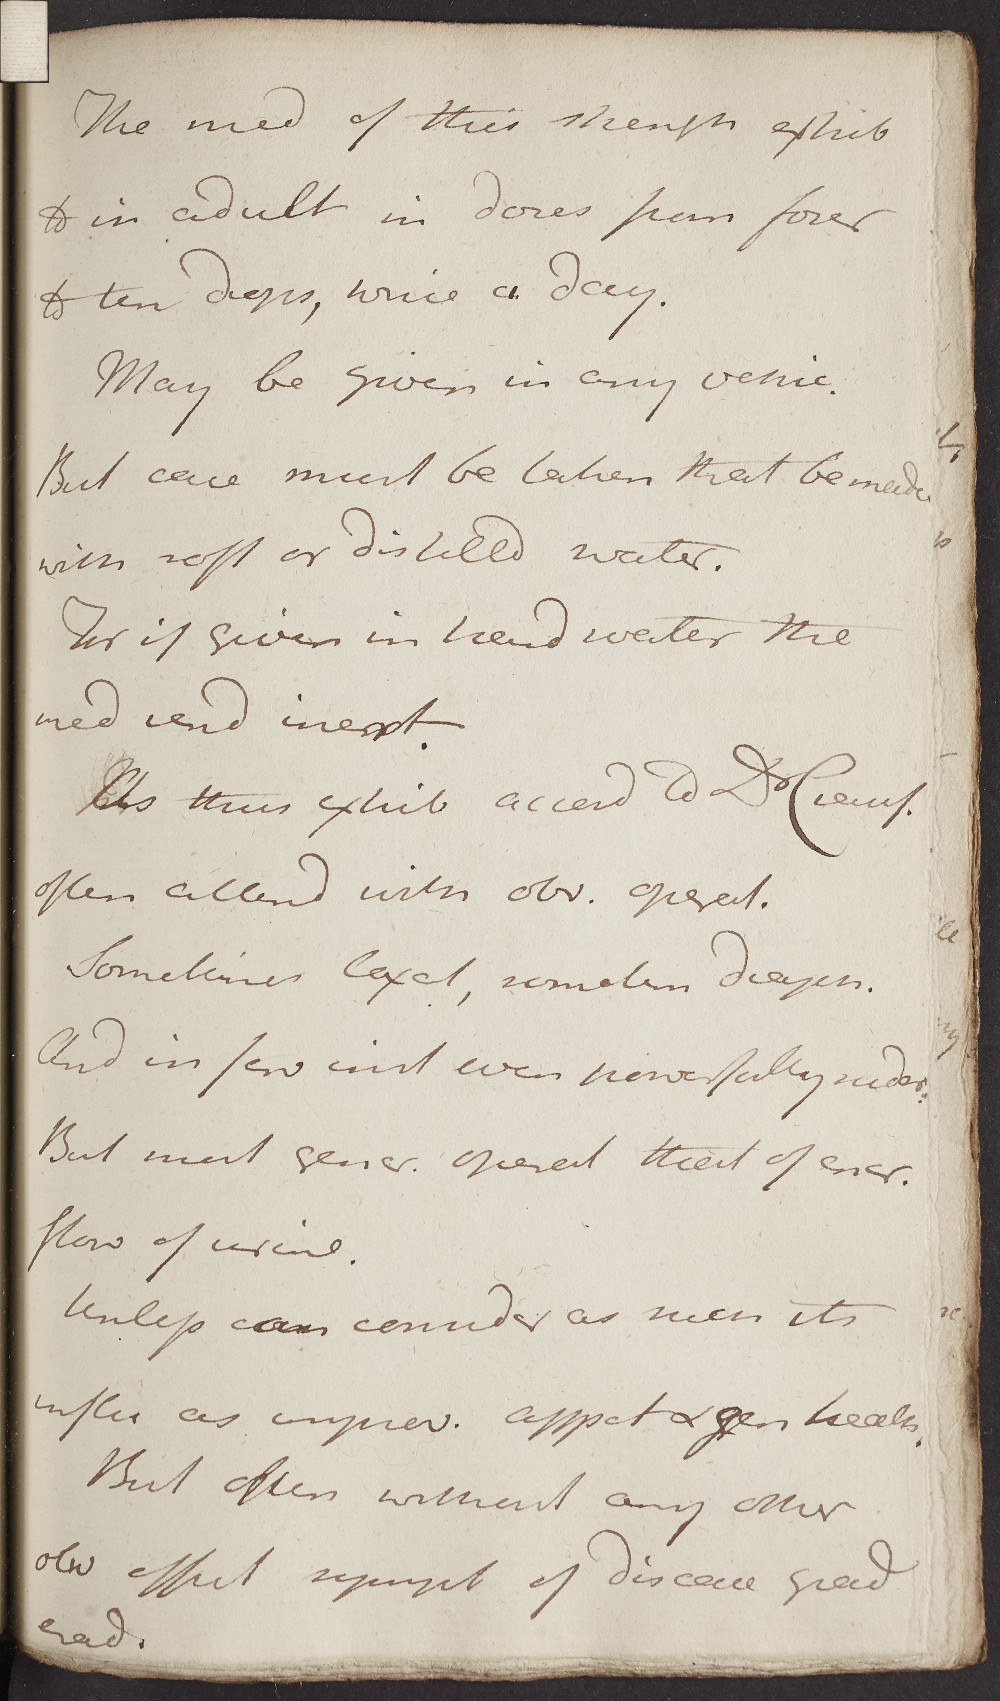 The med of this strength exhib
to in adult in doses from four
to ten drops, twice a day.
May be given in any vehic.
But care must be taken that be made
with soft or distilld water.
For if given in hard water the
med rend inert.
As thus exhib accord to Dr Crauf.
often attend with obv. operat.
Sometimes laxat, sometim diaph.
And in few inst even powerfully sudor.
But most gener. operat that of encr.
flow of urine.
Unless can consider as such its
influ as improv. appet & gen health.
But often without any other
obv effect sympt of disease grad
erad.